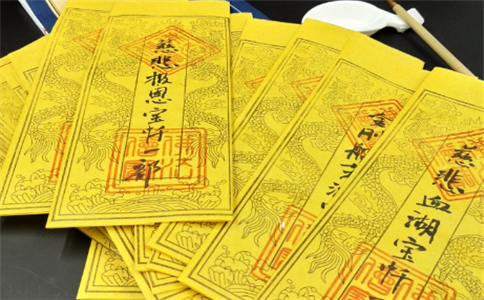 慈悲报恩宝忏一部
金刚般若
慈悲血湖宝忏